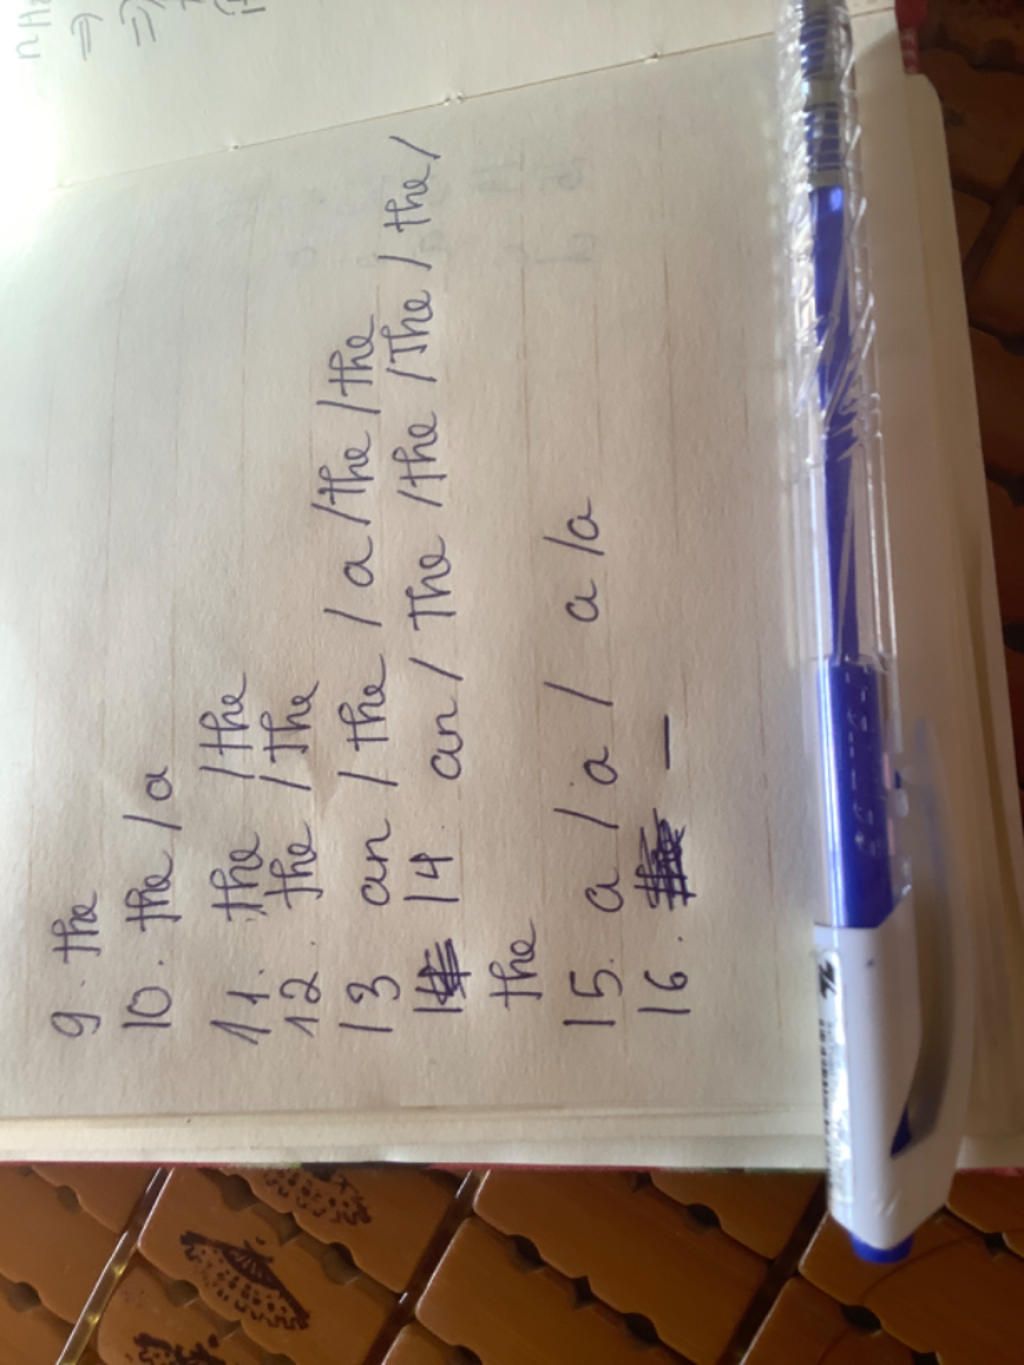 9. the
10. the / a
11. the / the
12. the / the
13 an / the / a / the / the
14 an / The / the / The / the /
the
15. a / a / a / a
16. –